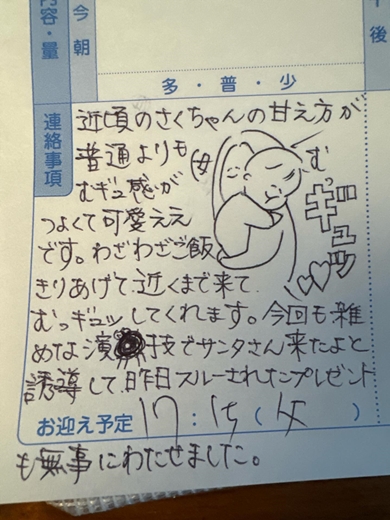 内容・量
今朝
午後
多・普・少
連絡事項
近頃のさくちゃんの甘え方が
普通よりも
むギュ感が
つよくて可愛ええ
です。わざわざご飯
きりあげて近くまで来て
むっギュッしてくれます。今回も雑
めな演技でサンタさん来たよと
誘導して昨日スルーされたプレゼント
お迎え予定 17:15(女)
も無事にわたせました。
母
むっ
ギュッ